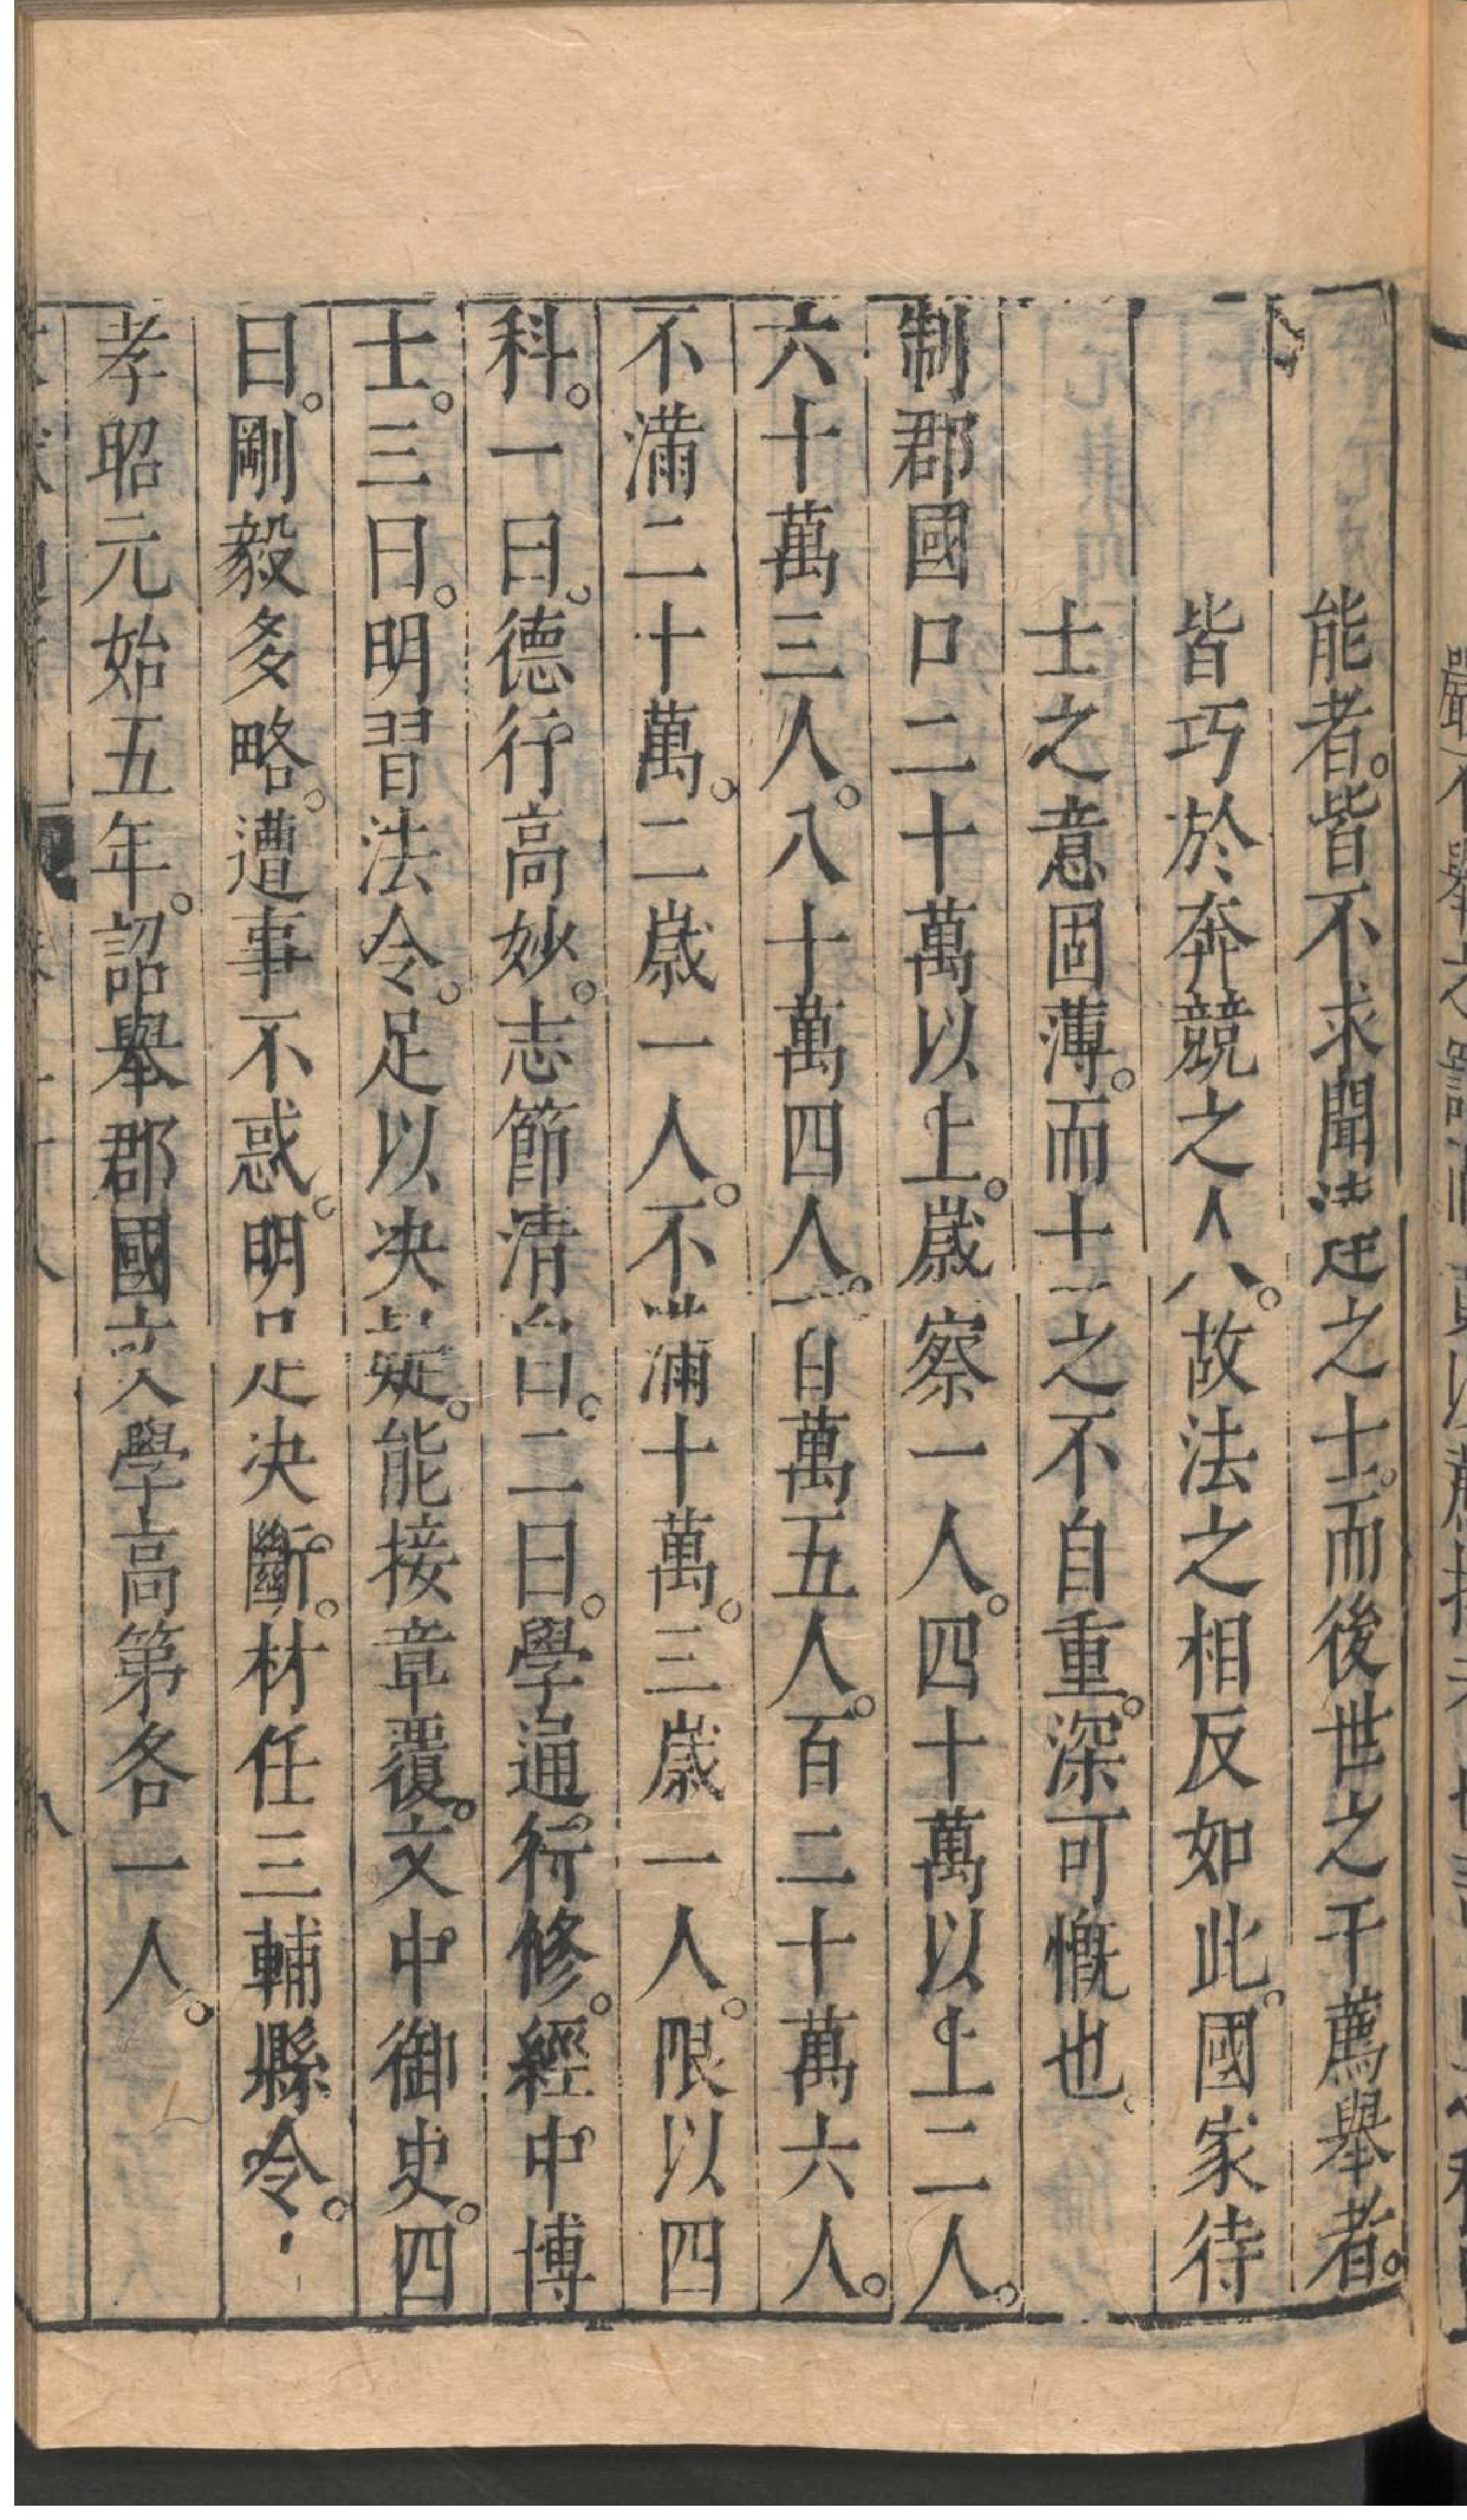 能者。皆不求聞達之士。而後世之干薦舉者。
皆巧於奔競之人。故法之相反如此。國家待
士之意固薄。而士之不自重。深可慨也。
制郡國口二十萬以上。歲察一人。四十萬以上二人。
六十萬三人。八十萬四人。百萬五人。百二十萬六人。
不滿二十萬。二歲一人。不滿十萬。三歲一人。限以四
科。一曰。德行高妙。志節清白。二曰。學通行修。經中博
士。三曰。明習法令。足以決疑。能接章覆文。中御史。四
曰。剛毅多略。遭事不惑。明足決斷。材任三輔縣令。
孝昭元始五年。詔舉郡國文學高第各一人。